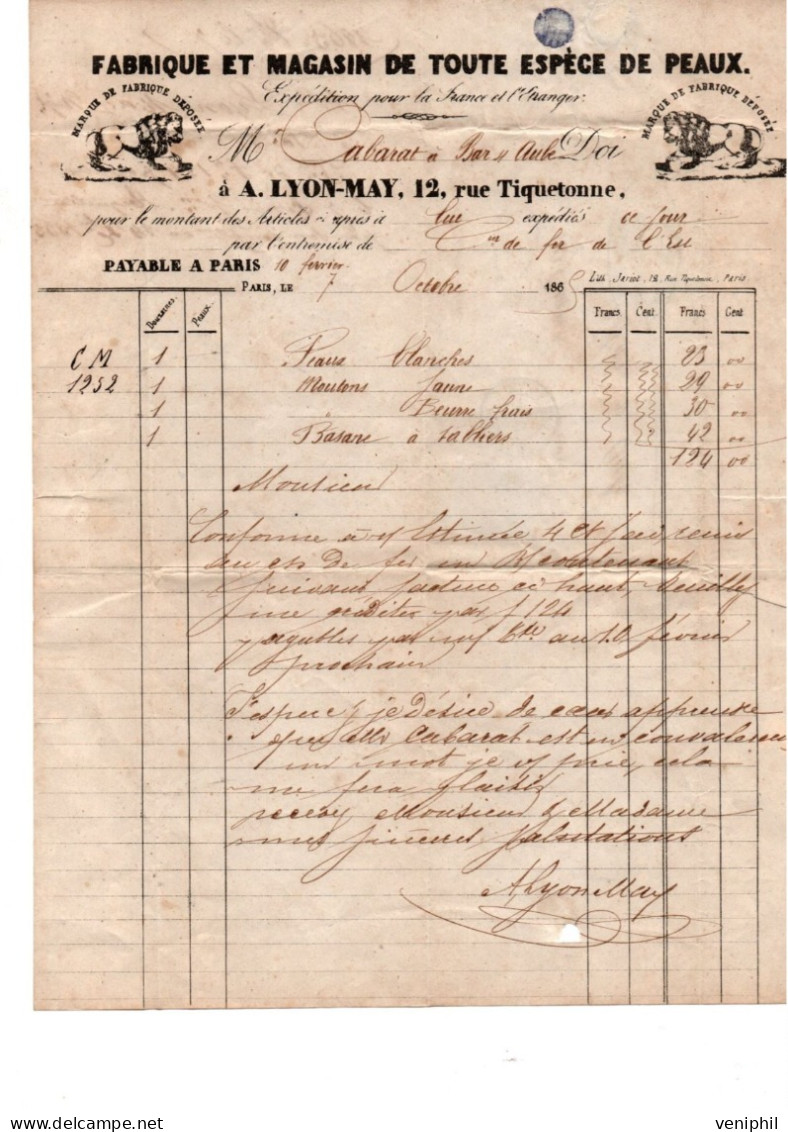 FABRIQUE ET MAGASIN DE TOUTE ESPÈCE DE PEAUX.
Expédition pour la France et l'Etranger.
MARQUE DE FABRIQUE DÉPOSÉE
MARQUE DE FABRIQUE DÉPOSÉE
Mr Cabarat à Bar s/ Aube Doi
à A. LYON-MAY, 12, rue Tiquetonne,
pour le montant des Articles ci après à lui expédiés ce jour
par l'entremise de Cin de fer de l'Est
PAYABLE A PARIS 10 fevrier
PARIS, LE 7 Octobre 1865
Lith. Jariot, 12, Rue Tiquetonne, Paris
Douzaines. Peaux. Francs Cent. Francs Cent
C M 1 Peaux blanches 23 00
1252 1 Moutons Jaune 29 00
1 Beurre frais 30 00
1 Basane à tabliers 42 00
124 00
Monsieur
Conforme à v/ Estimée 4 Ct J'ai remis
au ch de fer un contenant
suivant facture ci haut, Veuillez
me créditer par f 124
payables par au 10 février
prochain
J'espère & je désire de cœur apprendre
que Cabarat est en convalescence
un mot je v/ prie, cela
me fera plaisir
recevez Monsieur & Madame
mes sincères salutations
A Lyon May
veniphil